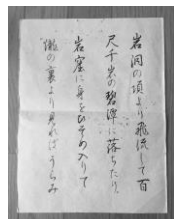 岩洞の頂より飛流して百
尺千岩の碧潭に落ちたり
岩窟に身をひそめ入りて
滝の裏より見れはうらみ